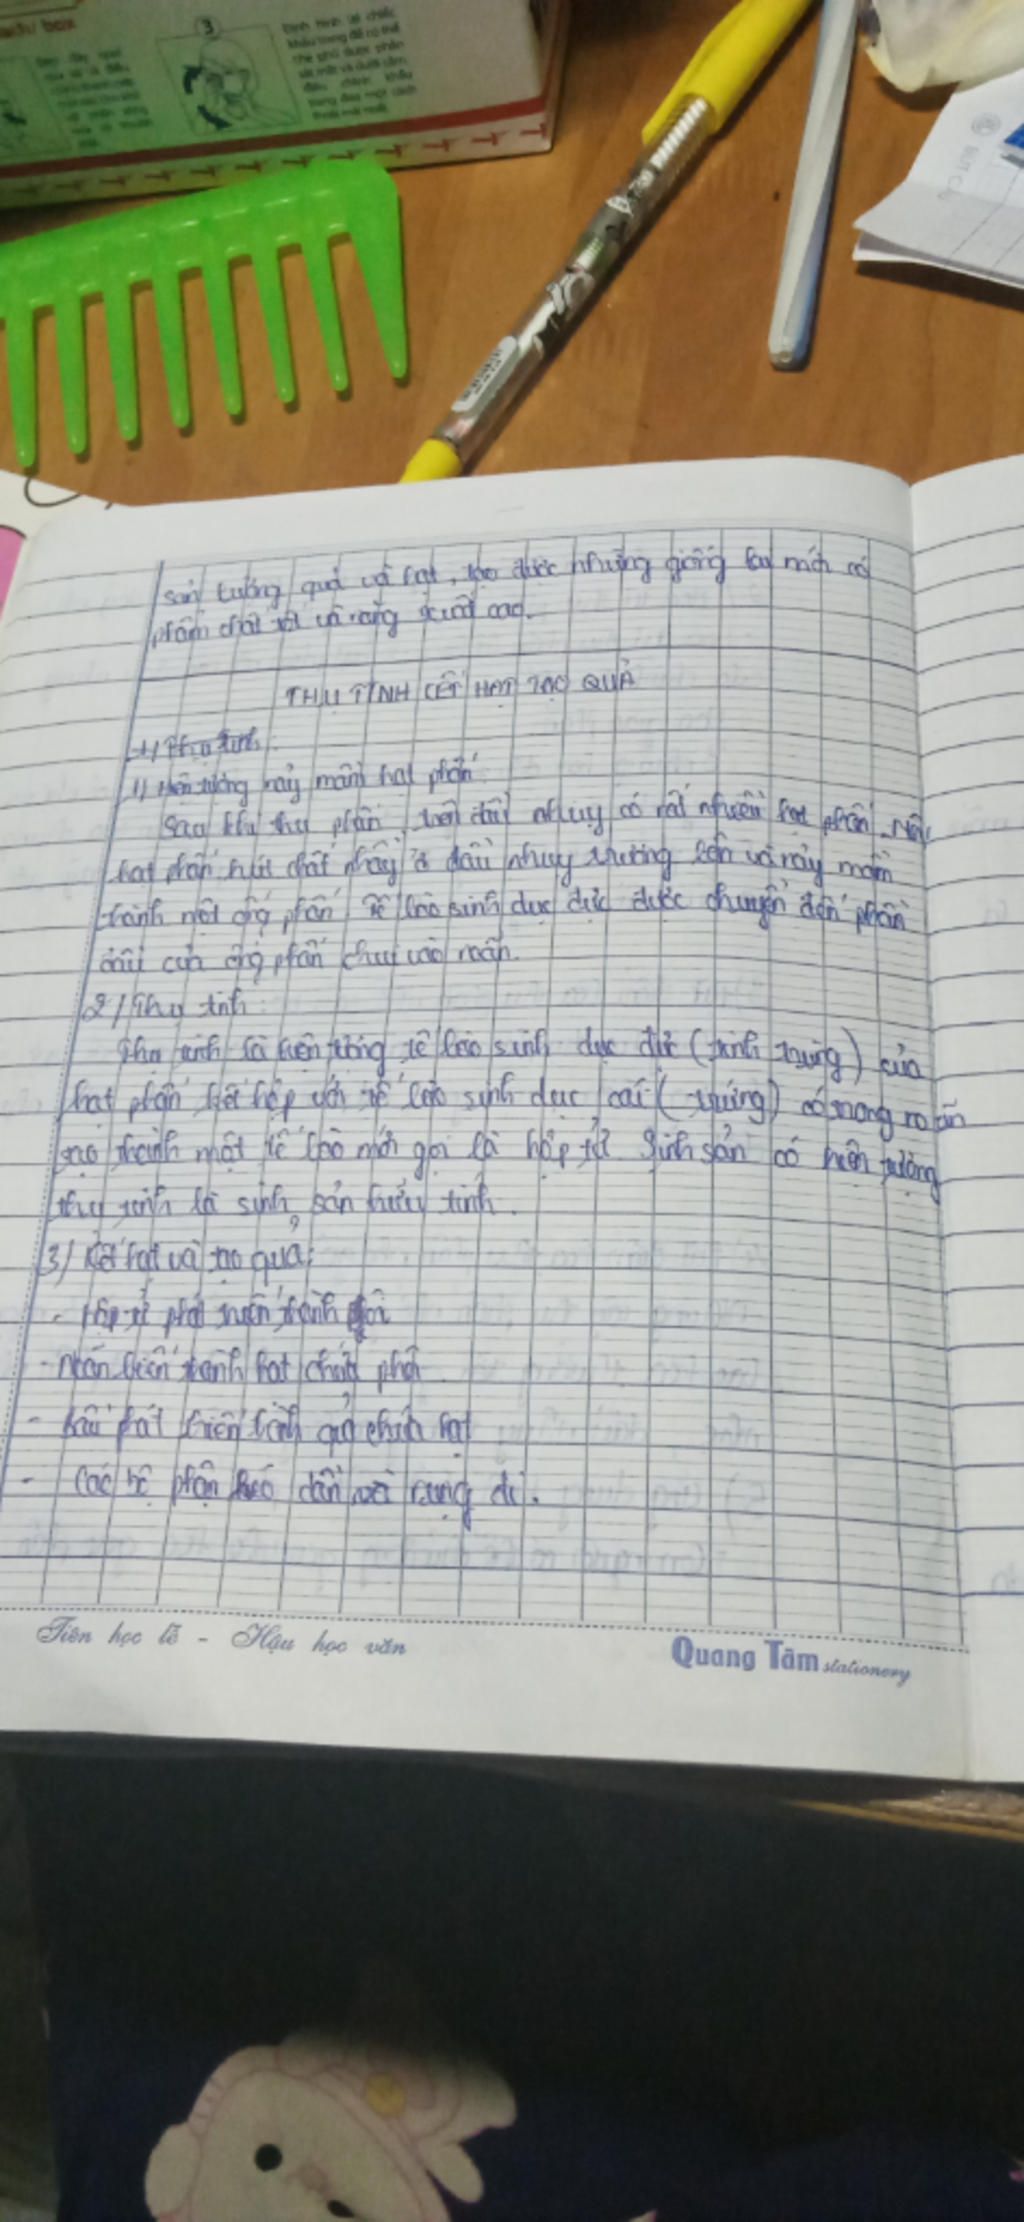 ach/ box
3
Định hình lại chiếc
khẩu trang để có thể
che phủ được phần
sát mũi và dưới cằm,
điều chỉnh khẩu
trang đeo một cách
thoải mái nhất.
sản lượng quả và hạt, tạo được những giống lai mới có
phẩm chất tốt và năng suất cao.
THỤ TINH KẾT HẠT TẠO QUẢ
1/ Thụ tinh:
1) Hiện tượng nảy mầm hạt phấn
Sau khi thụ phấn, trên đầu nhụy có rất nhiều hạt phấn. Mỗi
hạt phấn hút chất nhầy ở đầu nhụy trương lên và nảy mầm
thành một ống phấn tế bào sinh dục đực được chuyển đến phần
đầu của ống phấn chui vào noãn.
2/ Thụ tinh:
Thụ tinh là hiện tượng tế bào sinh dục đực (tinh trùng) của
hạt phấn kết hợp với tế bào sinh dục cái (trứng) có trong noãn
tạo thành một tế bào mới gọi là hợp tử. Sinh sản có hiện tượng
thụ tinh là sinh sản hữu tính.
3/ Kết hạt và tạo quả:
- Hợp tử phát triển thành phôi
- Noãn biến thành hạt chứa phôi
- Bầu phát triển thành quả chứa hạt
- Các bộ phận héo dần và rụng đi.
Tiên học lễ - Hậu học văn
Quang Tâm stationery